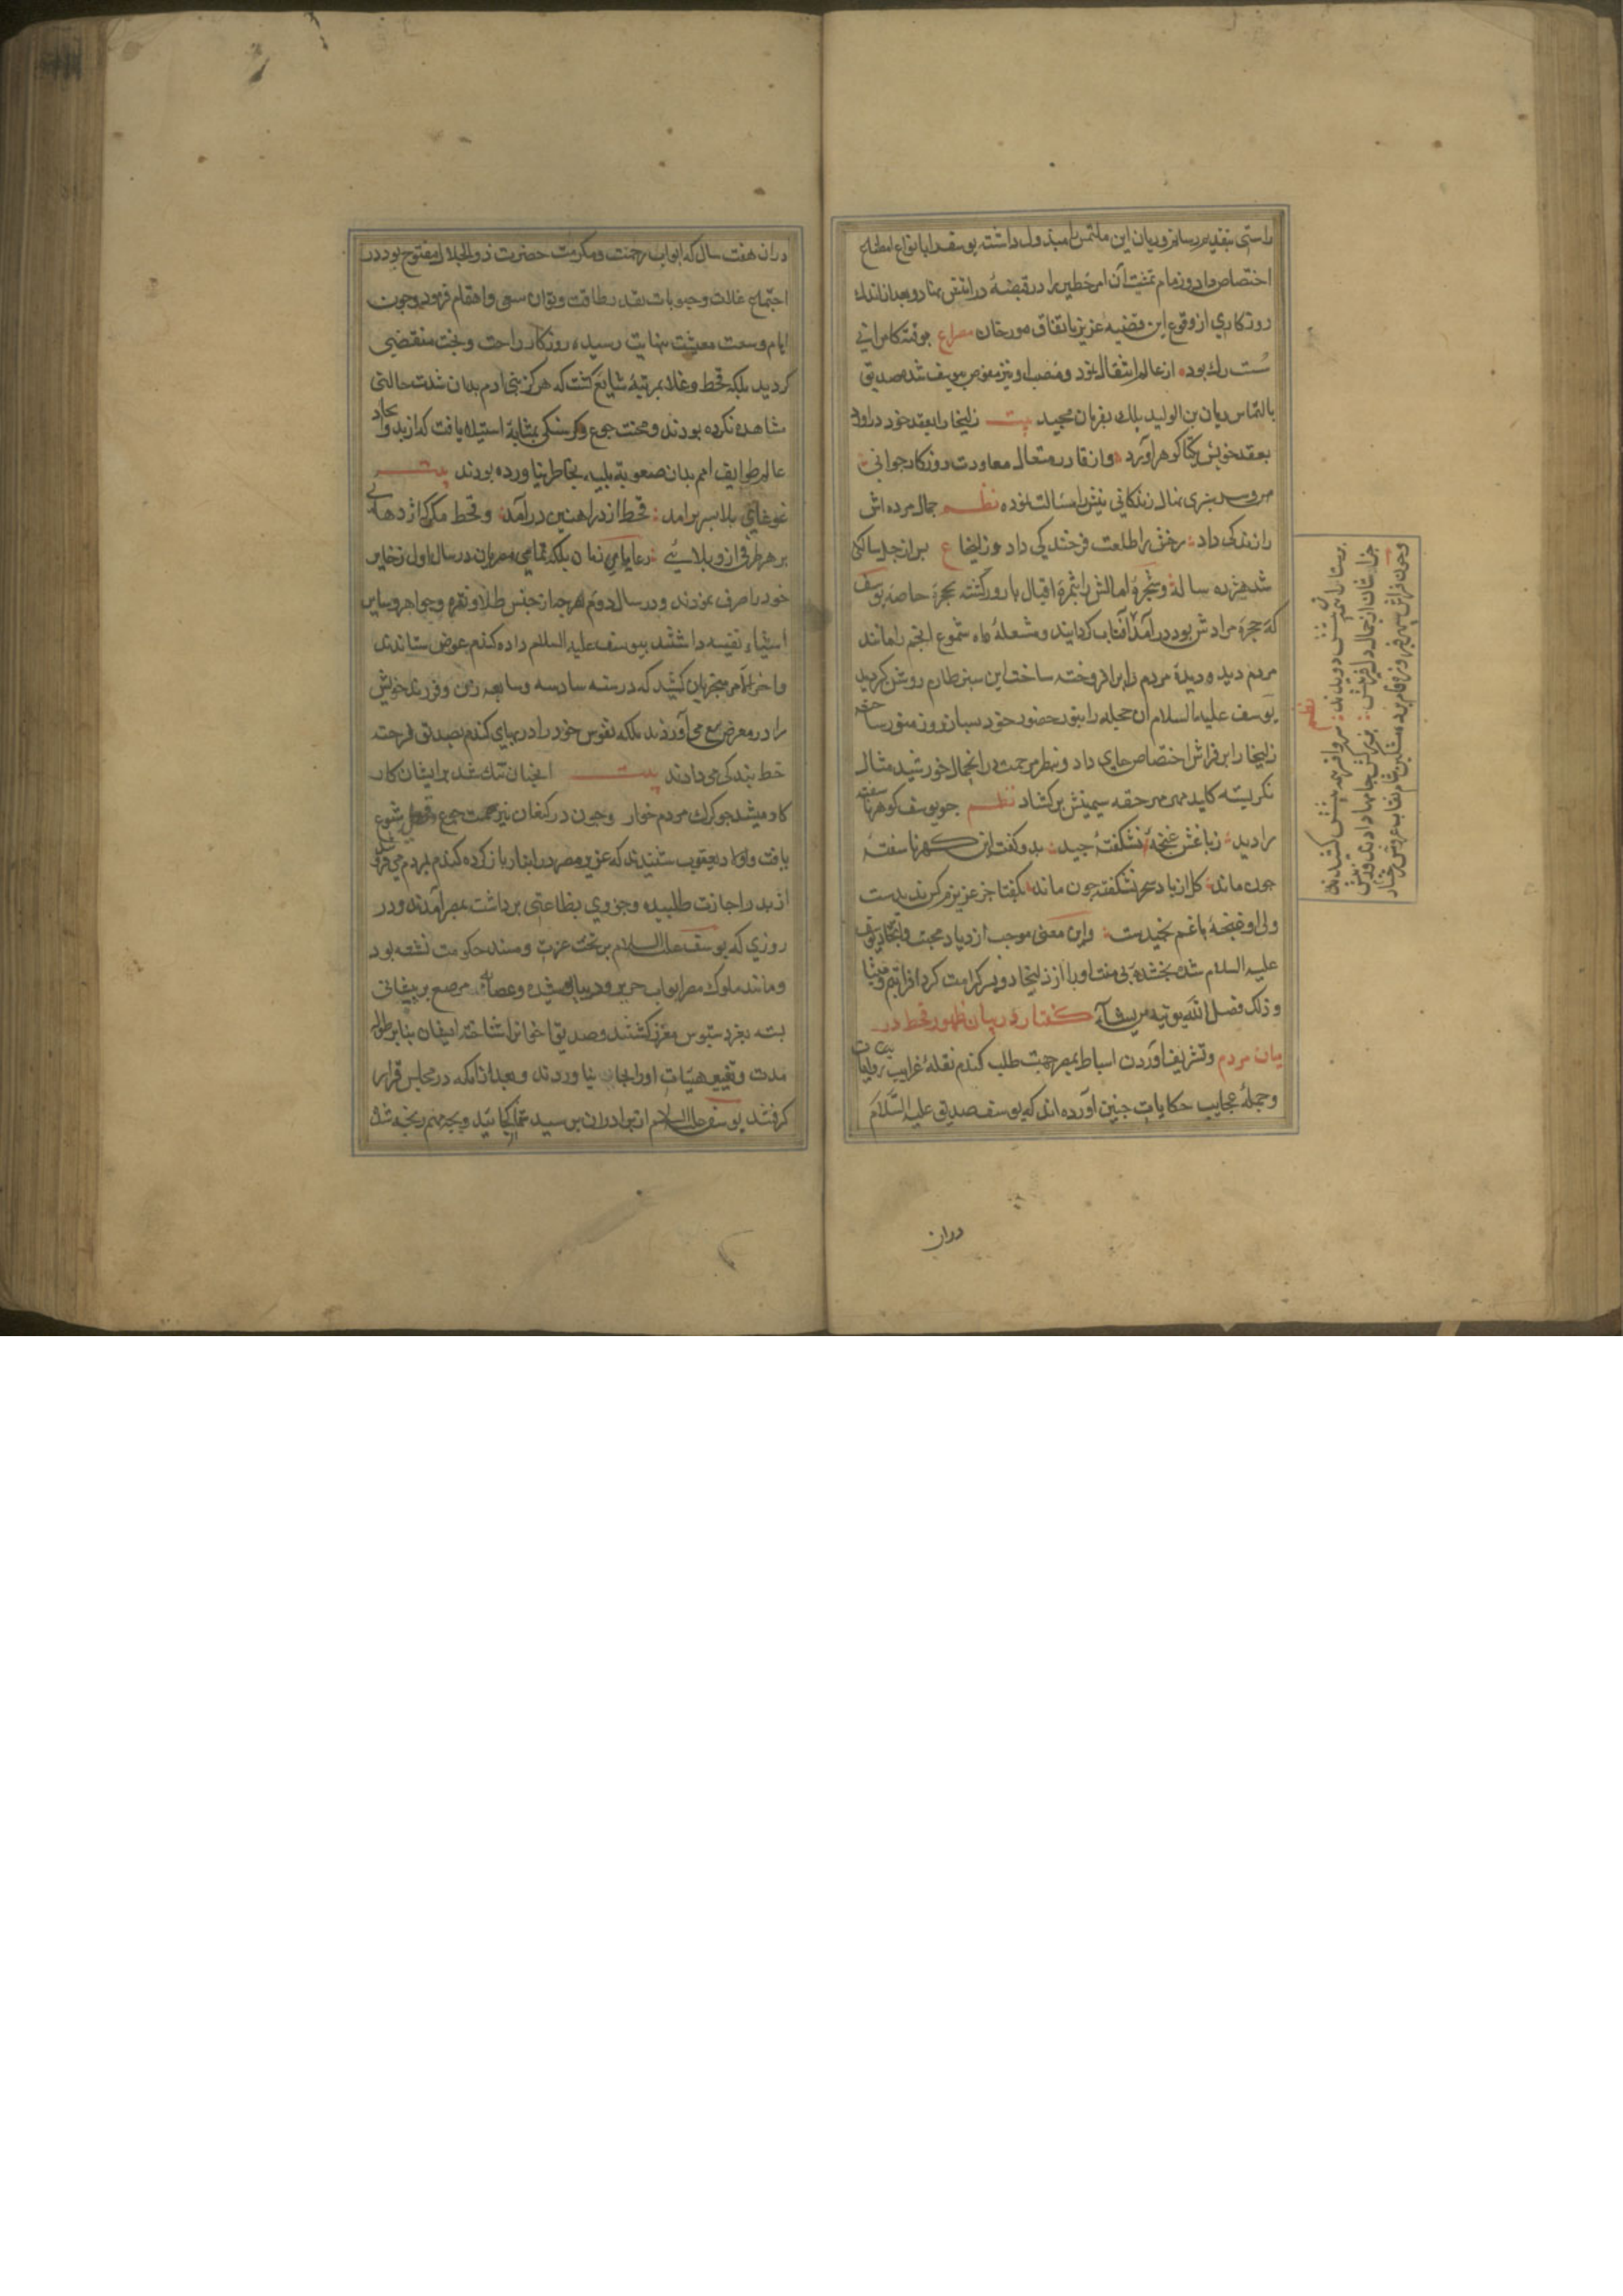 راستی بتقدیر رسانم و ریان این ملتمس را مبذول داشته یوسف را بانواع اصطناع
اختصاص داد و زمام تمشیت آن امر خطیر را در قبضهٔ درایتش نهاد و بعد از اندک
روزکاری از وقوع این قضیه عزیز باتفاق مورخان مصراع جو فتنه کامرانی
سست رک بود از عالم انتقال نمود و منصب او نیز مفوض بیوسف شد صدیق
بالتماس ریان بن الولید بلک بفرمان مجید بیت زلیخا را بعقد خود دراورد
بعقد خویش یکتا کوهر آورد و از قادر متعال معاودت روزکار جوانی
و سرسبزی نهال زندکانی نیتش را مسالت نموده نظم جمال مرده اش
را زندکی داد رخش را طلعت فرخندکی داد و زلیخا ع بس از چل سالکی
شد هژده ساله و شجرهٔ امالش را بثمرهٔ اقبال بارور کشته بحجرهٔ خاصهٔ یوسف
که حجرهٔ مرادش بود درآمد آفتاب کردانید و مشعلهٔ ماه شموع انجم را مانند
مردم دید و دیدهٔ مردم را برافروخته ساخت این سبز طارم روشن کردید
یوسف علیه السلام آن حجله را بنور حضور خود بسان روز منور ساخته
زلیخا را بر فراش اختصاص جای داد و بنظر مرحمت در ان جمال خورشید مثال
نکریسته کلید مهر حقه سیمینش برکشاد نظم جو یوسف کوهر ناسفته
را دید ز باغش غنچهٔ نشکفته چید بدو کفت این کهر ناسفته
چون ماند کل از باد سحر نشکفته چون ماند بکفتا جز عزیزم کس ندیدست
ولی او غنچهٔ باغم نچیدست و این معنی موجب ازدیاد محبت و اتحاد یوسف
علیه السلام شد بخشندهٔ بی منت او را از زلیخا دو پسر کرامت کرد افراثیم و میشا
و ذلک فضل الله یوتیه من یشآء کفتار در بیان ظهور قحط در
میان مردم و تشریف آوردن اسباط بمصر بجهت طلب کندم نقلهٔ غرایب روایات
و حملهٔ عجایب حکایات جنین آورده اند که یوسف صدیق علیه السلام
دران
وچون فراش سپهر فیروزه فام پرده مشکین شام نقاب عروس رخشار
نظم
دران هفت سال که ابواب رحمت و مکرمت حضرت ذوالجلال مفتوح بود در
اجتماع غلات و حبوبات بقدر طاقت و توان سعی و اهتمام فرمود و چون
ایام وسعت معیشت بنهایت رسیده روزکار راحت و بخت منقضی
کردید بلکه قحط و غلا بمرتبهٔ شایع کشت که هرکز بنی ادم بدان شدت حالتی
مشاهده نکرده بودند و محنت جوع و کرسنکی بمثابهٔ استیلا یافت که از بدو ایجاد
عالم طوایف امم بدان صعوبة بلیه بخاطر نیاورده بودند بیت
غوغای بلا بسر برامد قحط از در اهنین درآمد و قحط مکو که اژدهائی
بر هر طرفی ازو بلائی رعایای زمان بلکه تمامی مصریان در سال اول ذخایر
خود را صرف نمودند و در سال دوم هرچه از جنس طلا و نقره و جواهر و سایر
اشیاء نفیسه داشتند بیوسف علیه السلام داده کندم عوض ستاندند
و اخر الامر منجر بان کشید که در سنه سادسه و سابعه زن و فرزند خویش
را در معرض بیع می آوردند بلکه نفوس خود را در بهای کندم بصدیق فروخته
خط بندکی می دادند بیت انجنان تنک شد بر ایشان کار
کادمی شد جو کرک مردم خوار وچون در کنعان نیز محنت جوع و قحط شیوع
یافت و اولاد یعقوب شنیدند که عزیز مصر در انبار باز کرده کندم بمردم می فروشد
از پدر اجازت طلبیده و جزوی بضاعتی برداشت بمصر آمدند و در
روزی که یوسف علیه السلام بر تخت عزت و مسند حکومت نشسته بود
و مانند ملوک مصر اثواب حریر و دیبا پوشیده و عصابهٔ مرصع بر پیشانی
بسته بعز دستبوس معزز کشتند و صدیق اخوان را شناخته ایشان بنا بر طول
مدت و تغییر هیئات او را بجای نیاوردند و بعد از انکه در مجلس قرار
کرفتند یوسف علیه السلام از برادران پرسید شما کجائید و بجه مهم رنجه شده